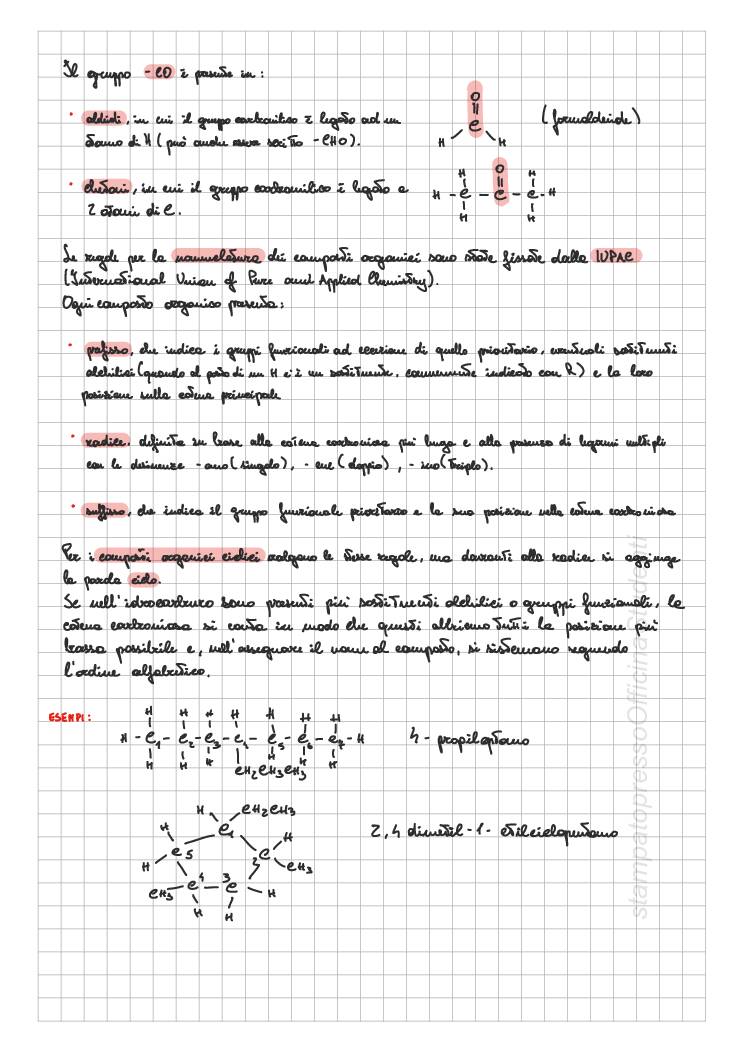 Il gruppo -CO è presente in:
• aldeidi, in cui il gruppo carbonilico è legato ad un
atomo di H (può anche essere scritto -CHO).
O
C
H H
(formaldeide)
• chetoni, in cui il gruppo carbonilico è legato a
2 atomi di C.
H O H
H - C - C - C - H
H H
Le regole per la nomenclatura dei composti organici sono state fissate dalla IUPAC
(International Union of Pure and Applied Chemistry).
Ogni composto organico presenta:
• prefisso, che indica i gruppi funzionali ad eccezione di quello prioritario, eventuali sostituenti
alchilici (quando al posto di un H c'è un sostituente, comunemente indicato con R) e la loro
posizione sulla catena principale
• radice, definita su base alla catena carboniosa più lunga e alla presenza di legami multipli
con le desinenze -ano (singolo), -ene (doppio), -ino (triplo).
• suffisso, che indica il gruppo funzionale prioritario e la sua posizione nella catena carboniosa
Per i composti organici ciclici valgono le stesse regole, ma davanti alla radice si aggiunge
la parola ciclo.
Se nell'idrocarburo sono presenti più sostituenti alchilici o gruppi funzionali, la
catena carboniosa si conta in modo che questi abbiano tutti la posizione più
bassa possibile e, nell'assegnare il nome al composto, si sistemano seguendo
l'ordine alfabetico.
ESEMPI:
H H H H H H H
H - C1 - C2 - C3 - C4 - C5 - C6 - C7 - H
H H H H H H
CH2CH2CH3
4 - propileptano
H CH2CH3
H C1 H
C5 2 C
H CH3
4 3
CH3 C - C H
H H
2,4 dimetil-1-etilciclopentano
stampatopressoOfficinaStudenti